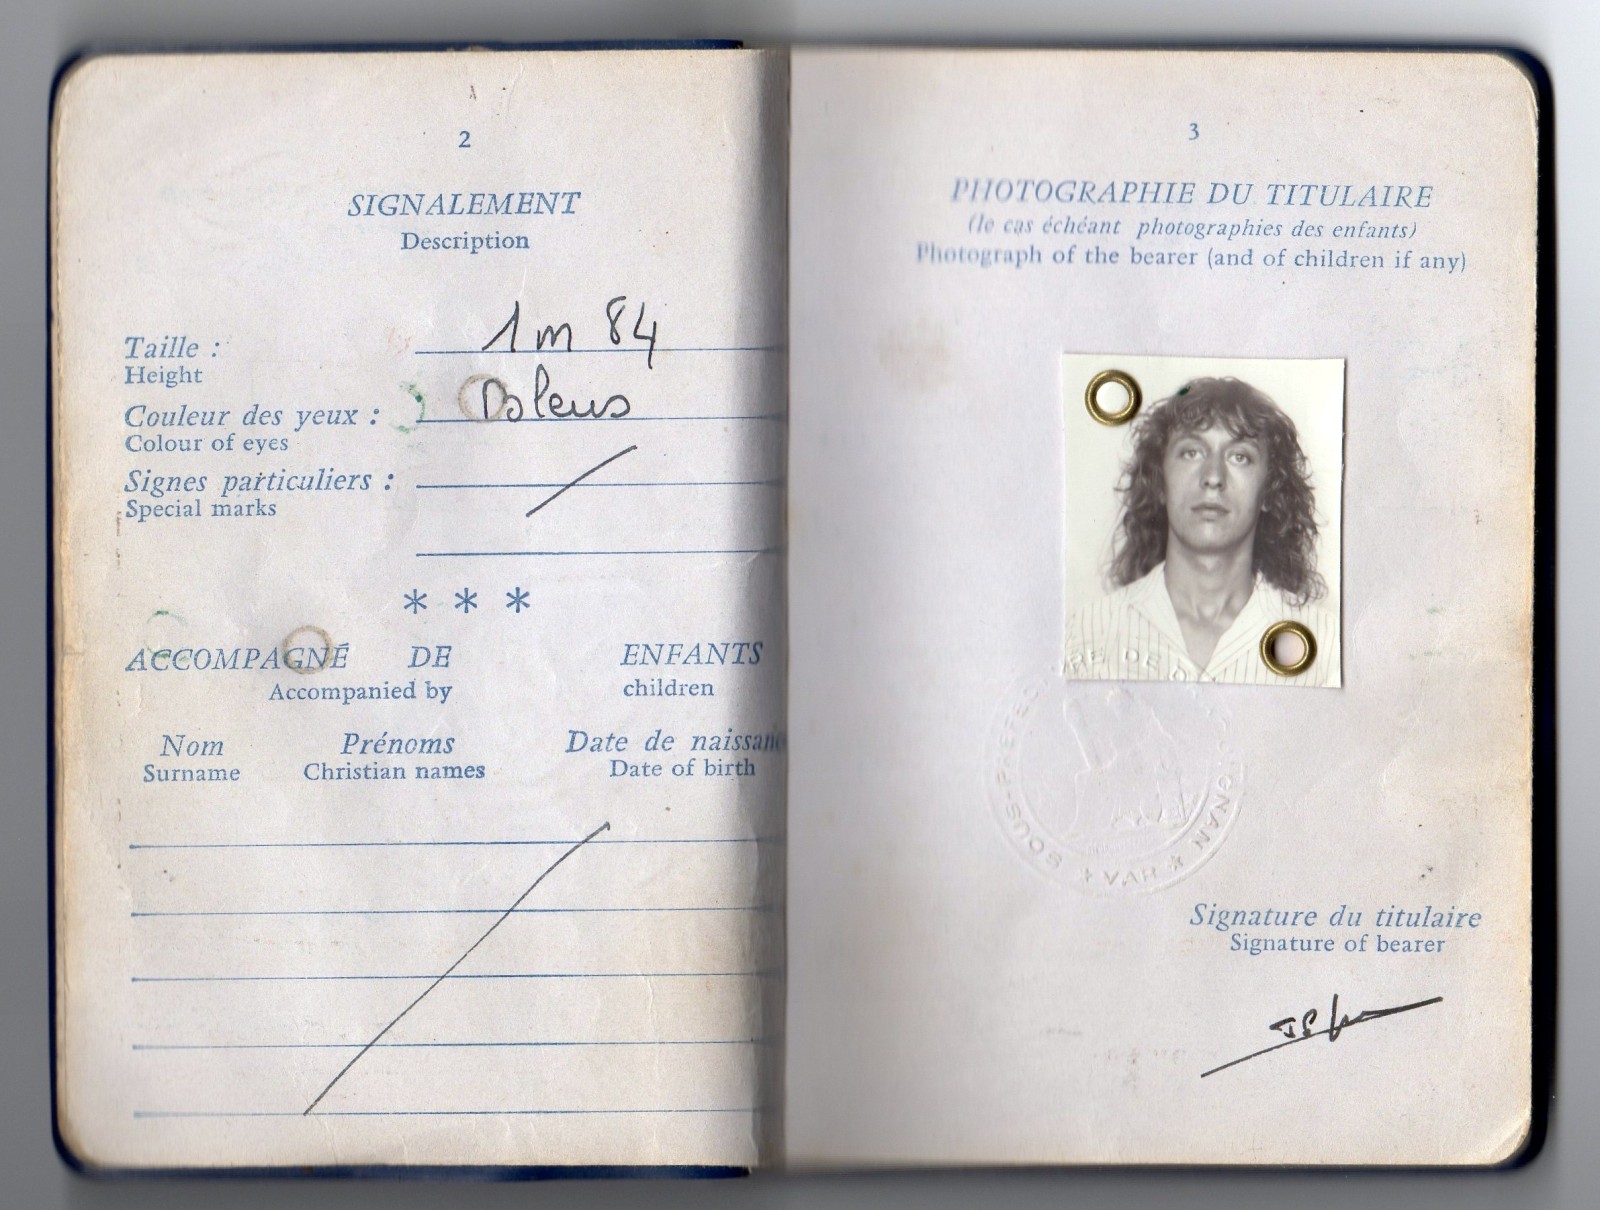 2
SIGNALEMENT
Description
Taille :
Height
1m 84
Couleur des yeux :
Colour of eyes
bleus
Signes particuliers :
Special marks
* * *
ACCOMPAGNÉ DE ENFANTS
Accompanied by children
Nom Prénoms Date de naissanc
Surname Christian names Date of birth
3
PHOTOGRAPHIE DU TITULAIRE
(le cas échéant photographies des enfants)
Photograph of the bearer (and of children if any)
SOUS-PREFECTURE DE DRAGUIGNAN
* VAR *
Signature du titulaire
Signature of bearer